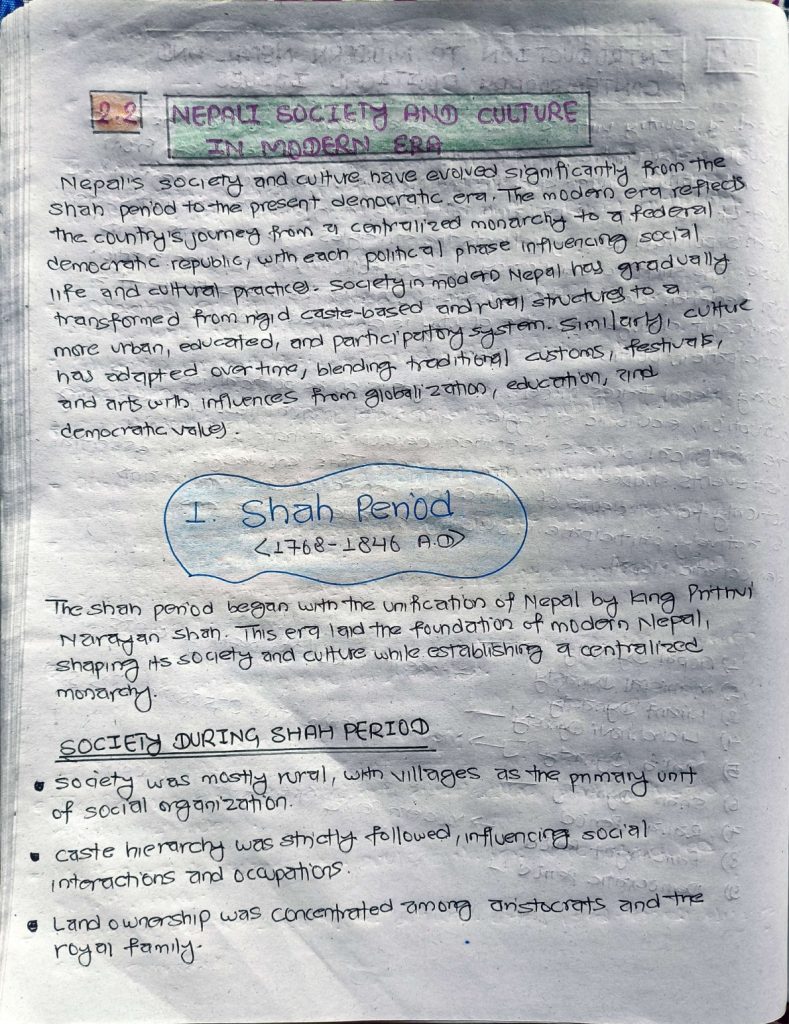 2.2 NEPALI SOCIETY AND CULTURE
IN MODERN ERA
Nepal's society and culture have evolved significantly from the
Shah period to the present democratic era. The modern era reflects
the country's journey from a centralized monarchy to a federal
democratic republic, with each political phase influencing social
life and cultural practices. Society in modern Nepal has gradually
transformed from rigid caste-based and rural structures to a
more urban, educated, and participatory system. Similarly, culture
has adapted over time, blending traditional customs, festivals,
and arts with influences from globalization, education, and
democratic values.
I. Shah Period
<1768-1846 A.D>
The shah period began with the unification of Nepal by king Prithvi
Narayan Shah. This era laid the foundation of modern Nepal,
shaping its society and culture while establishing a centralized
monarchy.
SOCIETY DURING SHAH PERIOD
• society was mostly rural, with villages as the primary unit
of social organization.
• caste hierarchy was strictly followed, influencing social
interactions and occupations.
• Land ownership was concentrated among aristocrats and the
royal family.